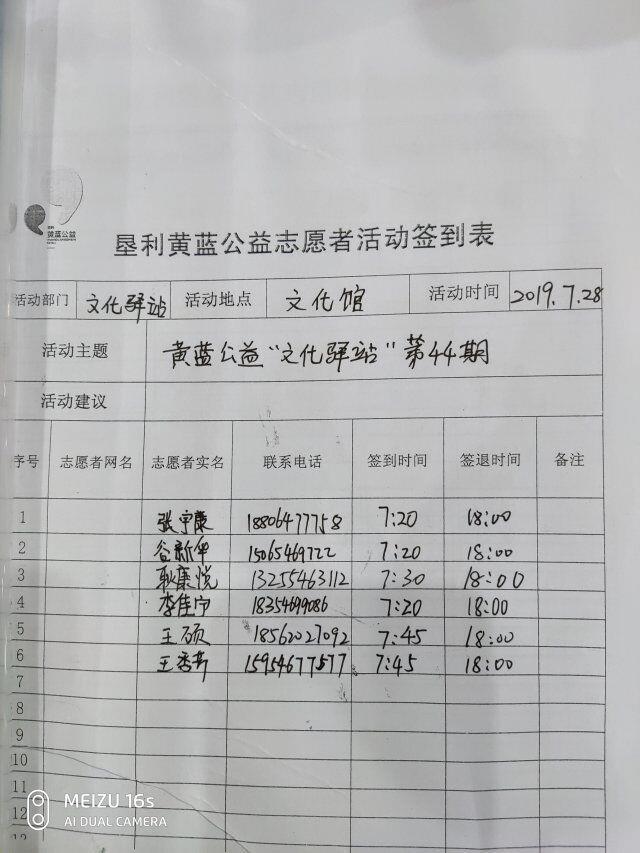 黄蓝公益
垦利黄蓝公益志愿者活动签到表
活动部门 文化驿站 活动地点 文化馆 活动时间 2019.7.28
活动主题 黄蓝公益“文化驿站”第44期
活动建议
序号 志愿者网名 志愿者实名 联系电话 签到时间 签退时间 备注
1 张宇康 18806477758 7:20 18:00
2 谷新华 15065469722 7:20 18:00
3 耿康悦 13255463112 7:30 18:00
4 李佳宁 18354699086 7:20 18:00
5 王硕 18562027092 7:45 18:00
6 王秀芹 15954677577 7:45 18:00
7
8
9
10
11
12
MEIZU 16s
AI DUAL CAMERA